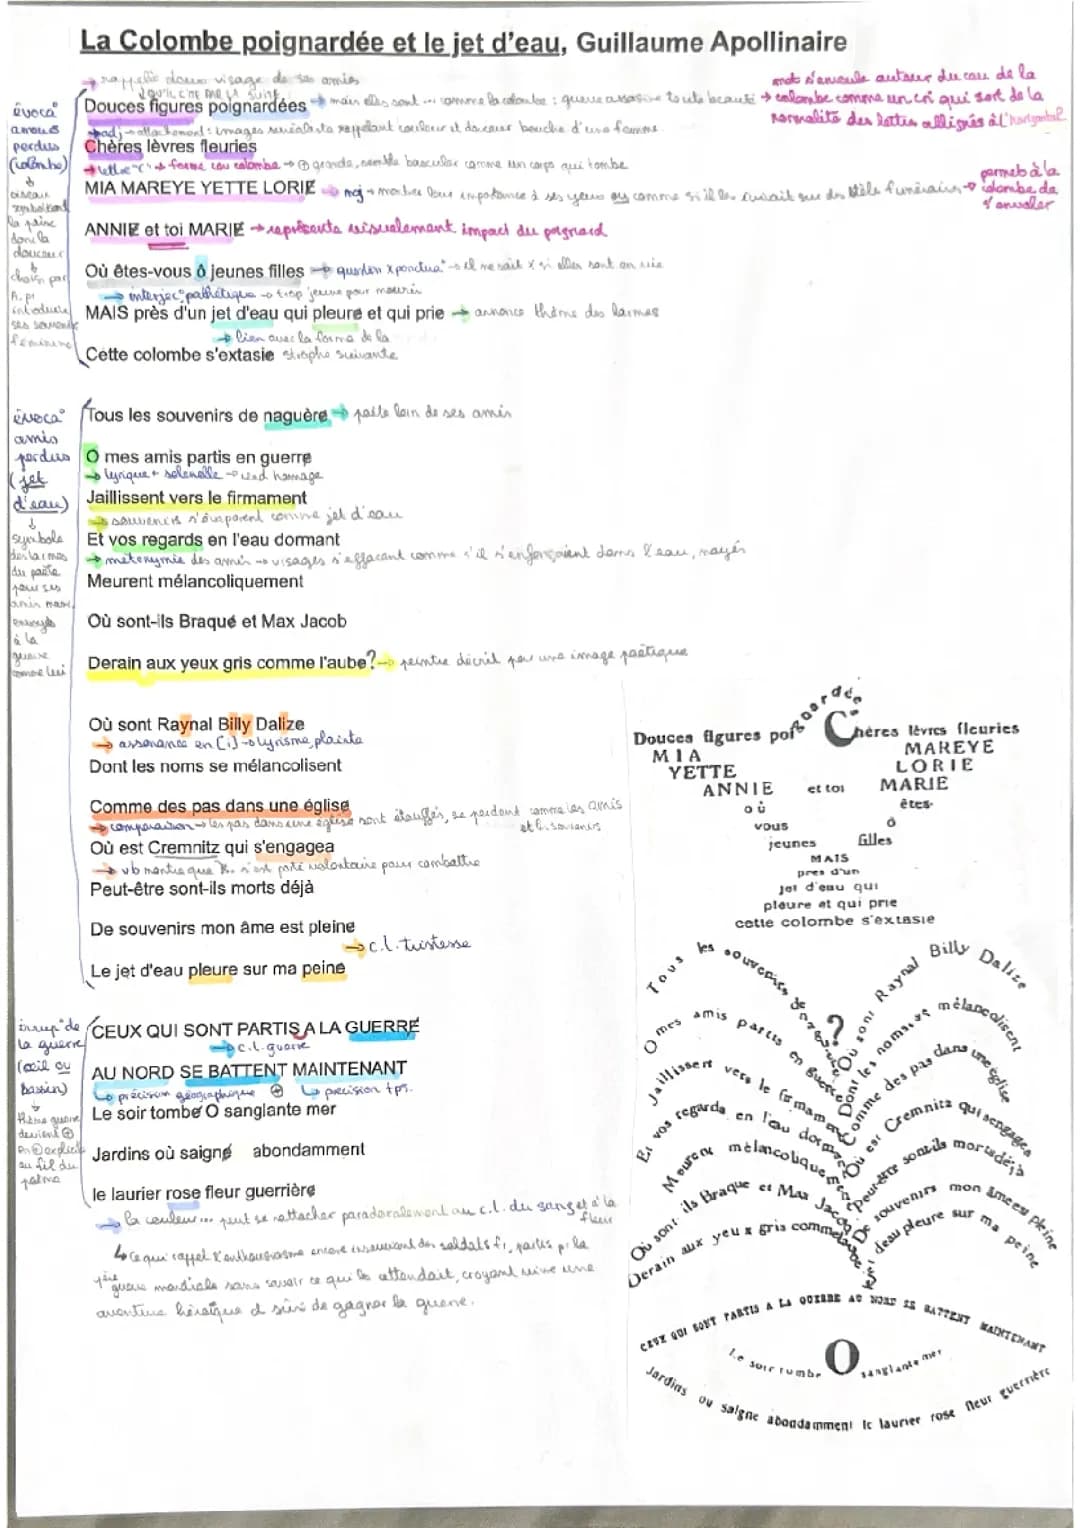 La Colombe poignardée et le jet d'eau, Guillaume Apollinaire
→ rappelle doux visage de ses amies
Douces figures poignardées → mais elles sont ... comme la colombe : guerre assassine toute beauté → colombe comme un cri qui sort de la
mot s'enroule autour du cou de la
normalité des lettres alignées à l'horizontal
→ adj → attachement : images surréaliste rappelant couleur et douceur bouche d'une femme
Chères lèvres fleuries
→ lettre "C" → forme cou colombe → ⊕ grande, semble basculer comme un corps qui tombe
MIA MAREYE YETTE LORIE → maj → montre leur importance à ses yeux ou comme s'il les écrivait sur des stèles funéraires → permet à la
colombe de
s'envoler
ANNIE et toi MARIE → représente visuellement impact du poignard
Où êtes-vous ô jeunes filles → question x ponctua° → il ne sait x si elles sont en vie
→ interjec° pathétique → trop jeune pour mourir
MAIS près d'un jet d'eau qui pleure et qui prie → annonce thème des larmes
→ lien avec la forme de la
Cette colombe s'extasie strophe suivante
évoca°
amours
perdus
(colombe)
↓
oiseau
symbolisant
la paix
donc la
douceur
↓
choisi par
A. pr
introduire
ses souvenirs
féminins
Tous les souvenirs de naguère → parle loin de ses amis
O mes amis partis en guerre
→ lyrique + solennelle → rend hommage
Jaillissent vers le firmament
→ souvenirs s'évaporent comme jet d'eau
Et vos regards en l'eau dormant
→ métonymie des amis → visages s'effaçant comme s'il s'enfonçaient dans l'eau, noyés
Meurent mélancoliquement
Où sont-ils Braque et Max Jacob
Derain aux yeux gris comme l'aube? → peintre décrit par une image poétique
évoca°
amis
perdus
(jet
d'eau)
↓
symbole
des larmes
du poète
pour ses
amis
envoyés
à la
guerre
comme lui
Où sont Raynal Billy Dalize
→ assonance en [i] → lyrisme, plainte
Dont les noms se mélancolisent
Comme des pas dans une église
→ comparaison → les pas dans une église sont étouffés, se perdent comme les amis
et les souvenirs
Où est Cremnitz qui s'engagea
→ vb montre que K. s'est porté volontaire pour combattre
Peut-être sont-ils morts déjà
De souvenirs mon âme est pleine
→ c.l. tristesse
Le jet d'eau pleure sur ma peine
CEUX QUI SONT PARTIS A LA GUERRE
→ c.l. guerre
AU NORD SE BATTENT MAINTENANT
↳ précision géographique ⊕ ↳ précision tps.
Le soir tombe O sanglante mer
Jardins où saigne abondamment
le laurier rose fleur guerrière
→ la couleur... peut se rattacher paradoxalement au c.l. du sang et à la
fleur
↳ ce qui rappel l'enthousiasme encore insouciant des soldats fr, partis pr la
1ère guerre mondiale sans savoir ce qui les attendait, croyant vivre une
aventure héroïque et sûrs de gagner la guerre.
de
la guerre
(œil ou
bassin)
↓
thème guerre
devient ⊕
en ⊕ explicite
au fil du
poème
Douces figures poignardées Chères lèvres fleuries
MIA MAREYE
YETTE LORIE
ANNIE et toi MARIE
où êtes-
vous ô
jeunes filles
MAIS
près d'un
jet d'eau qui
pleure et qui prie
cette colombe s'extasie
Tous les souvenirs de naguère
O mes amis partis en guerre
Jaillissent vers le firmament
Et vos regards en l'eau dormant
Meurent mélancoliquement
Où sont-ils Braque et Max Jacob
Derain aux yeux gris comme l'aube
?
Où sont Raynal Billy Dalize
Dont les noms se mélancolisent
Comme des pas dans une église
Où est Cremnitz qui s'engagea
Peut-être sont-ils morts déjà
De souvenirs mon âme est pleine
Le jet d'eau pleure sur ma peine
CEUX QUI SONT PARTIS A LA GUERRE AU NORD SE BATTENT MAINTENANT
Le soir tombe O sanglante mer
Jardins où saigne abondamment le laurier rose fleur guerrière